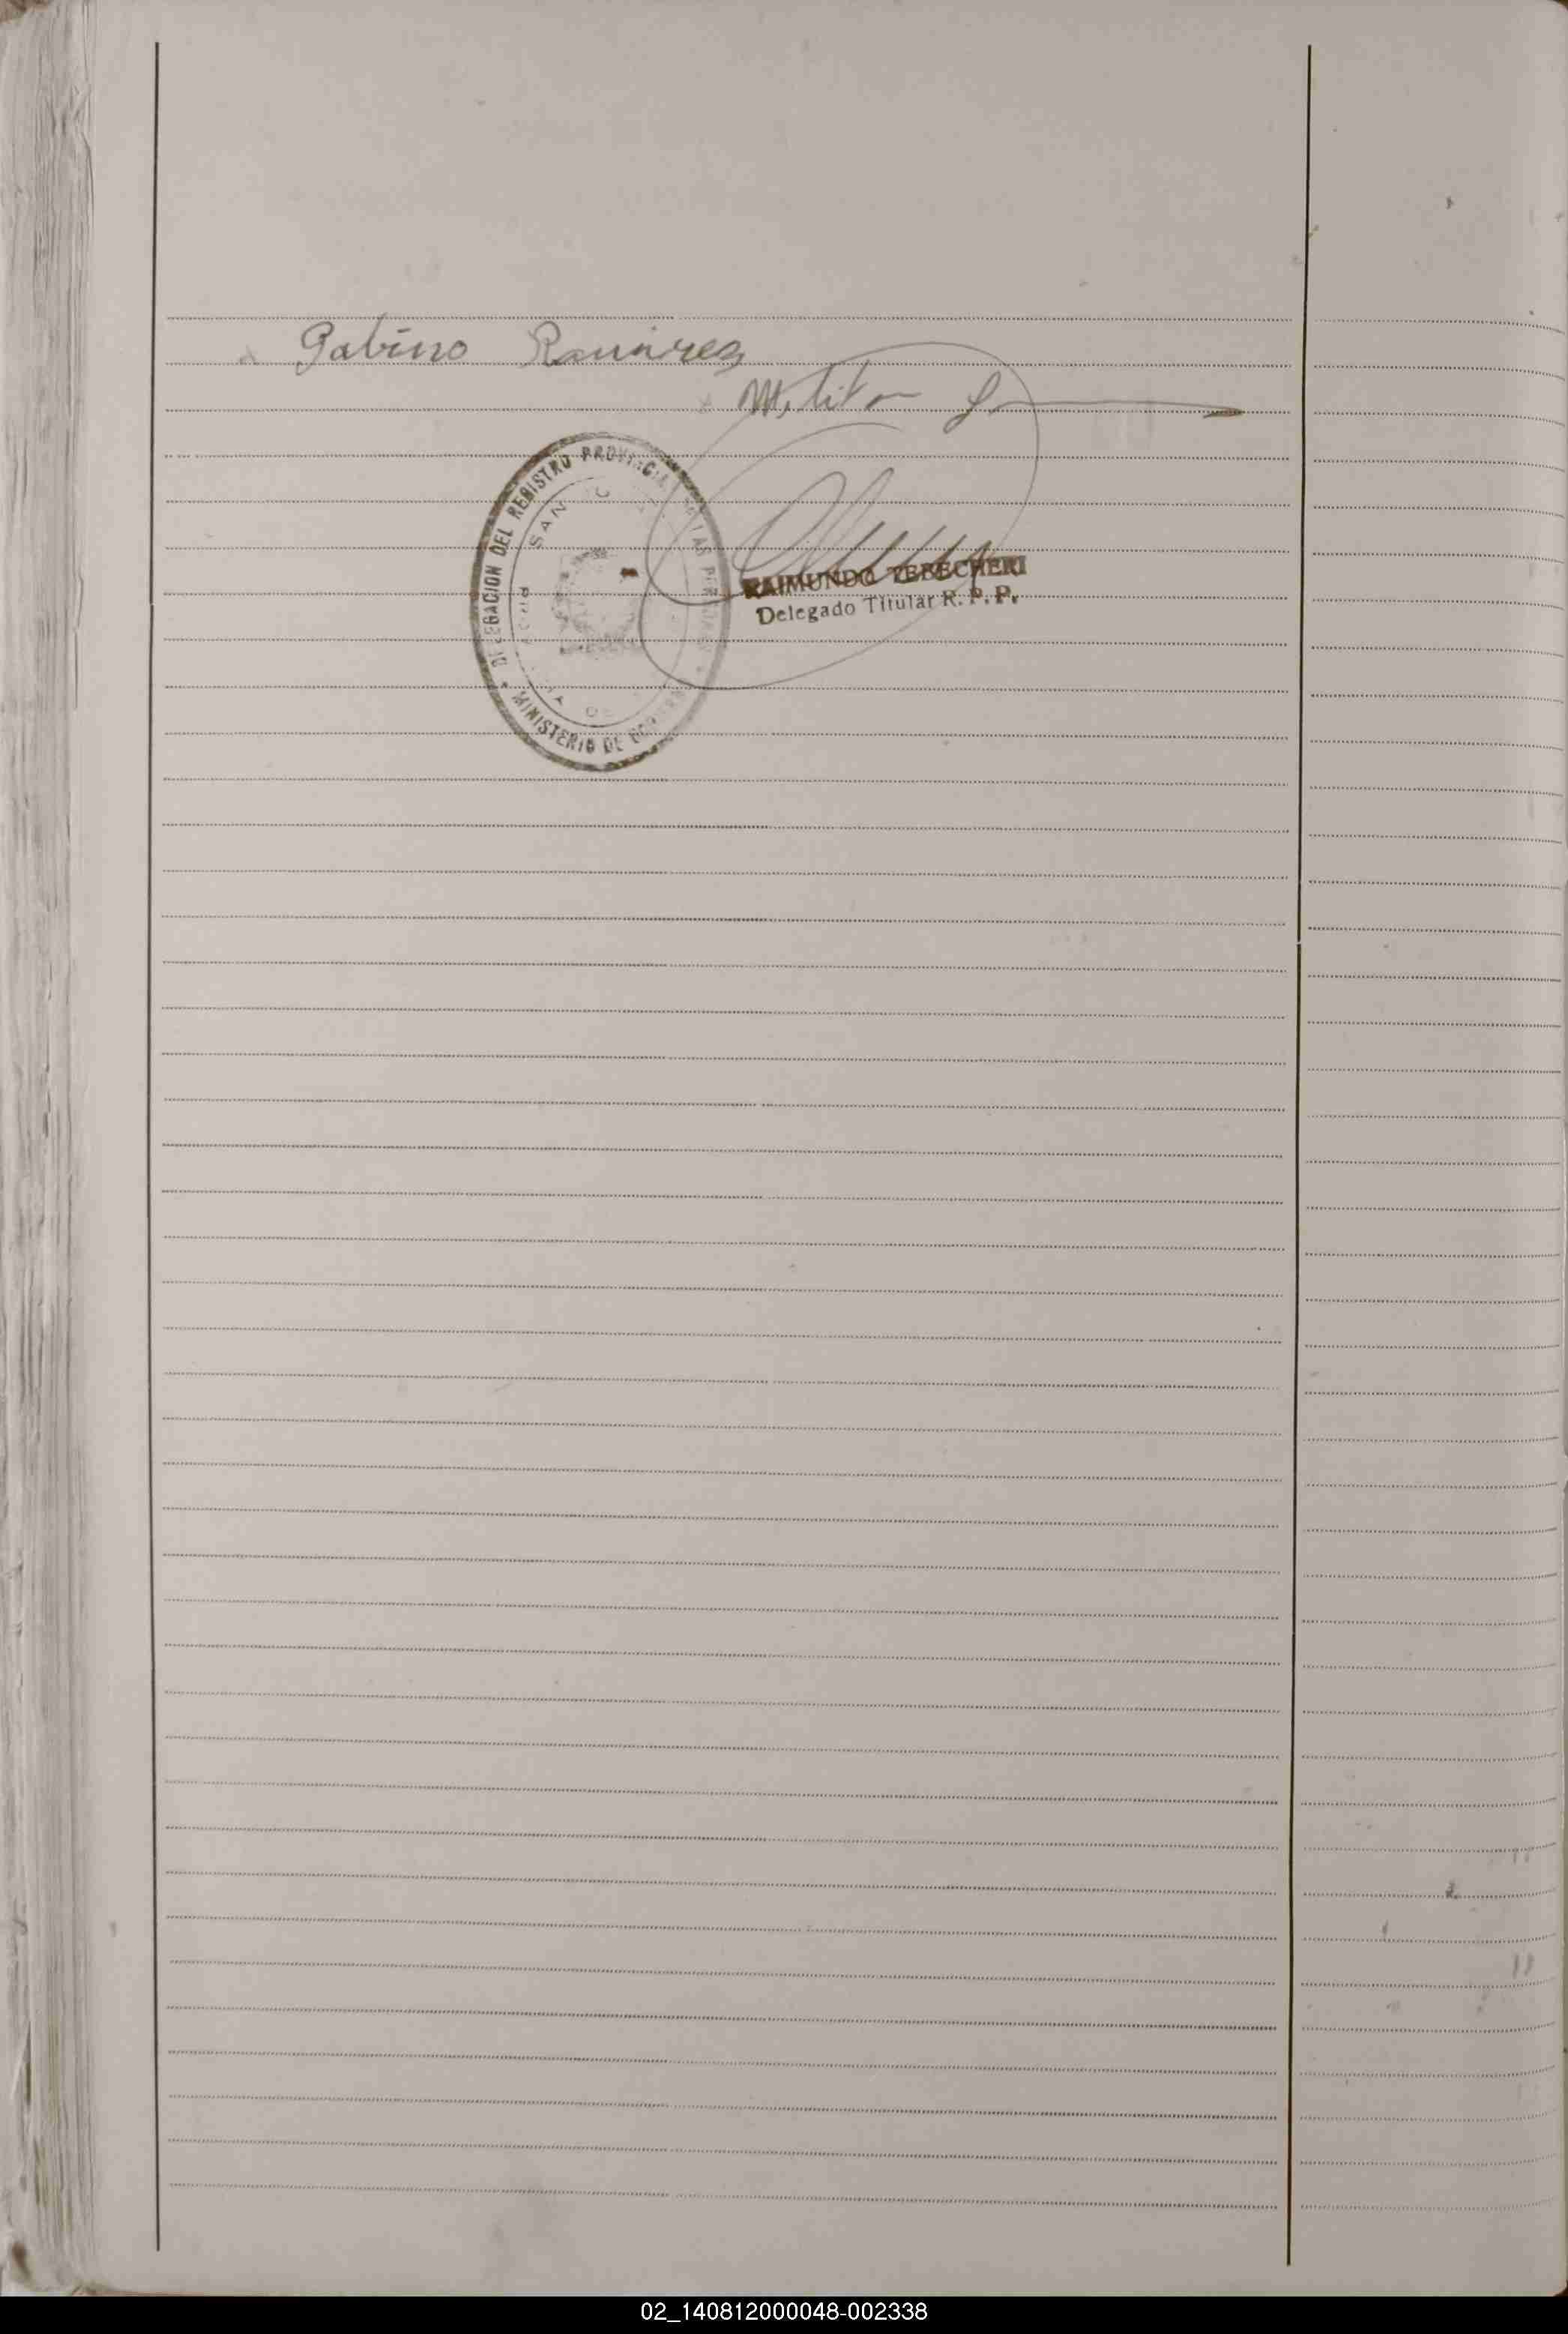 Gabino Ramires
Meliton
DELEGACION DEL REGISTRO PROVINCIAL
MINISTERIO DE
SAN
RAIMUNDO TERECHERI
Delegado Titular R. P. P.
02_140812000048-002338